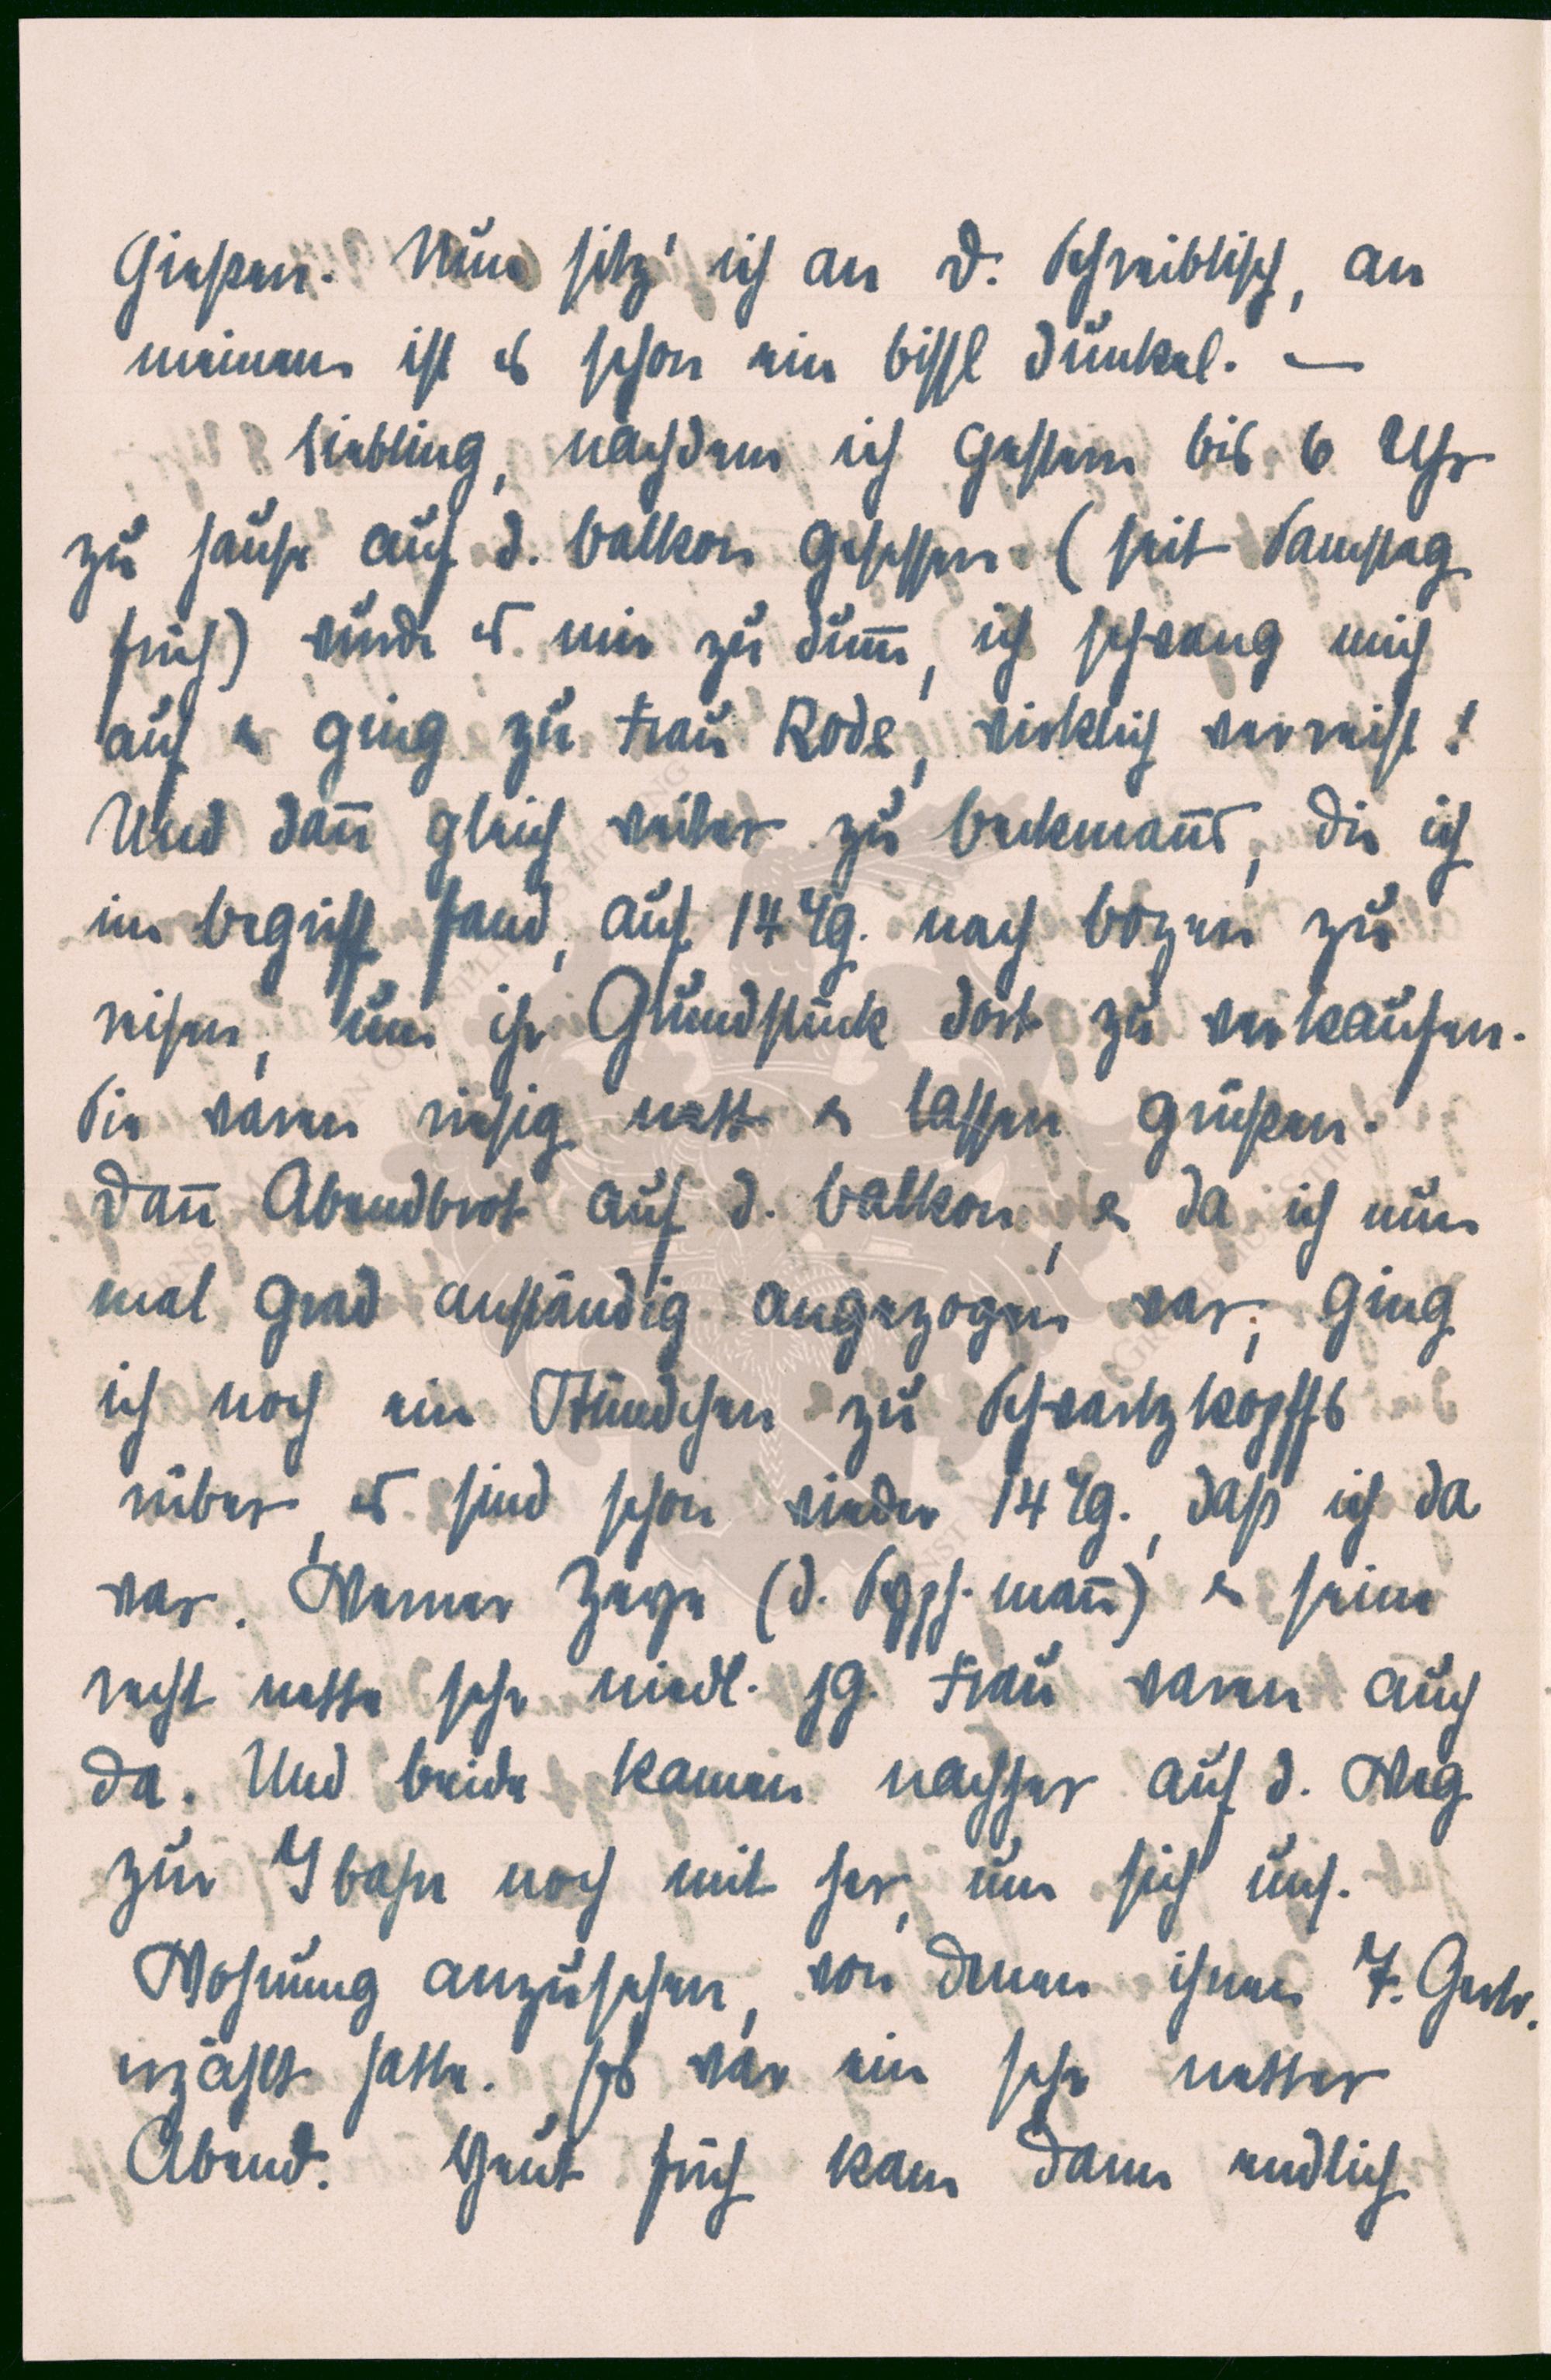 Giessen. Nun sitz' ich an D. Schreibtisch, an
meinem ist es schon ein bissl dunkel. —
Liebling, nachdem ich gestern bis 6 Uhr
zu hause auf d. balkon gesessen (seit Samstag
früh) wurde es mir zu dum̄, ich schwang mich
auf & ging zu Frau Rode, wirklich verreist!
Und dan̄ gleich weiter zu beckman̄s, die ich
im begriff fand, auf 14 Tg. nach bozen zu
reisen, um ihr Grundstück dort zu verkaufen.
Sie waren riesig nett & lassen grüssen.
Dan̄ Abendbrot auf d. balkon, & da ich nun
mal grad anständig angezogen war, ging
ich noch ein Stündchen zu Schwartzkopffs
rüber, es sind schon wieder 14 Tg., dass ich da
war. Werner (d. man̄) & seine
recht nette sehr niedl. jg. Frau waren auch
da. Und beide kamen nachher auf d. Weg
zur bahn noch mit her, um sich uns.
Wohnung anzusehen, von denen ihnen Gertr.
erzählt hatte. Es war ein sehr netter
Abend. Heut früh kam dann endlich